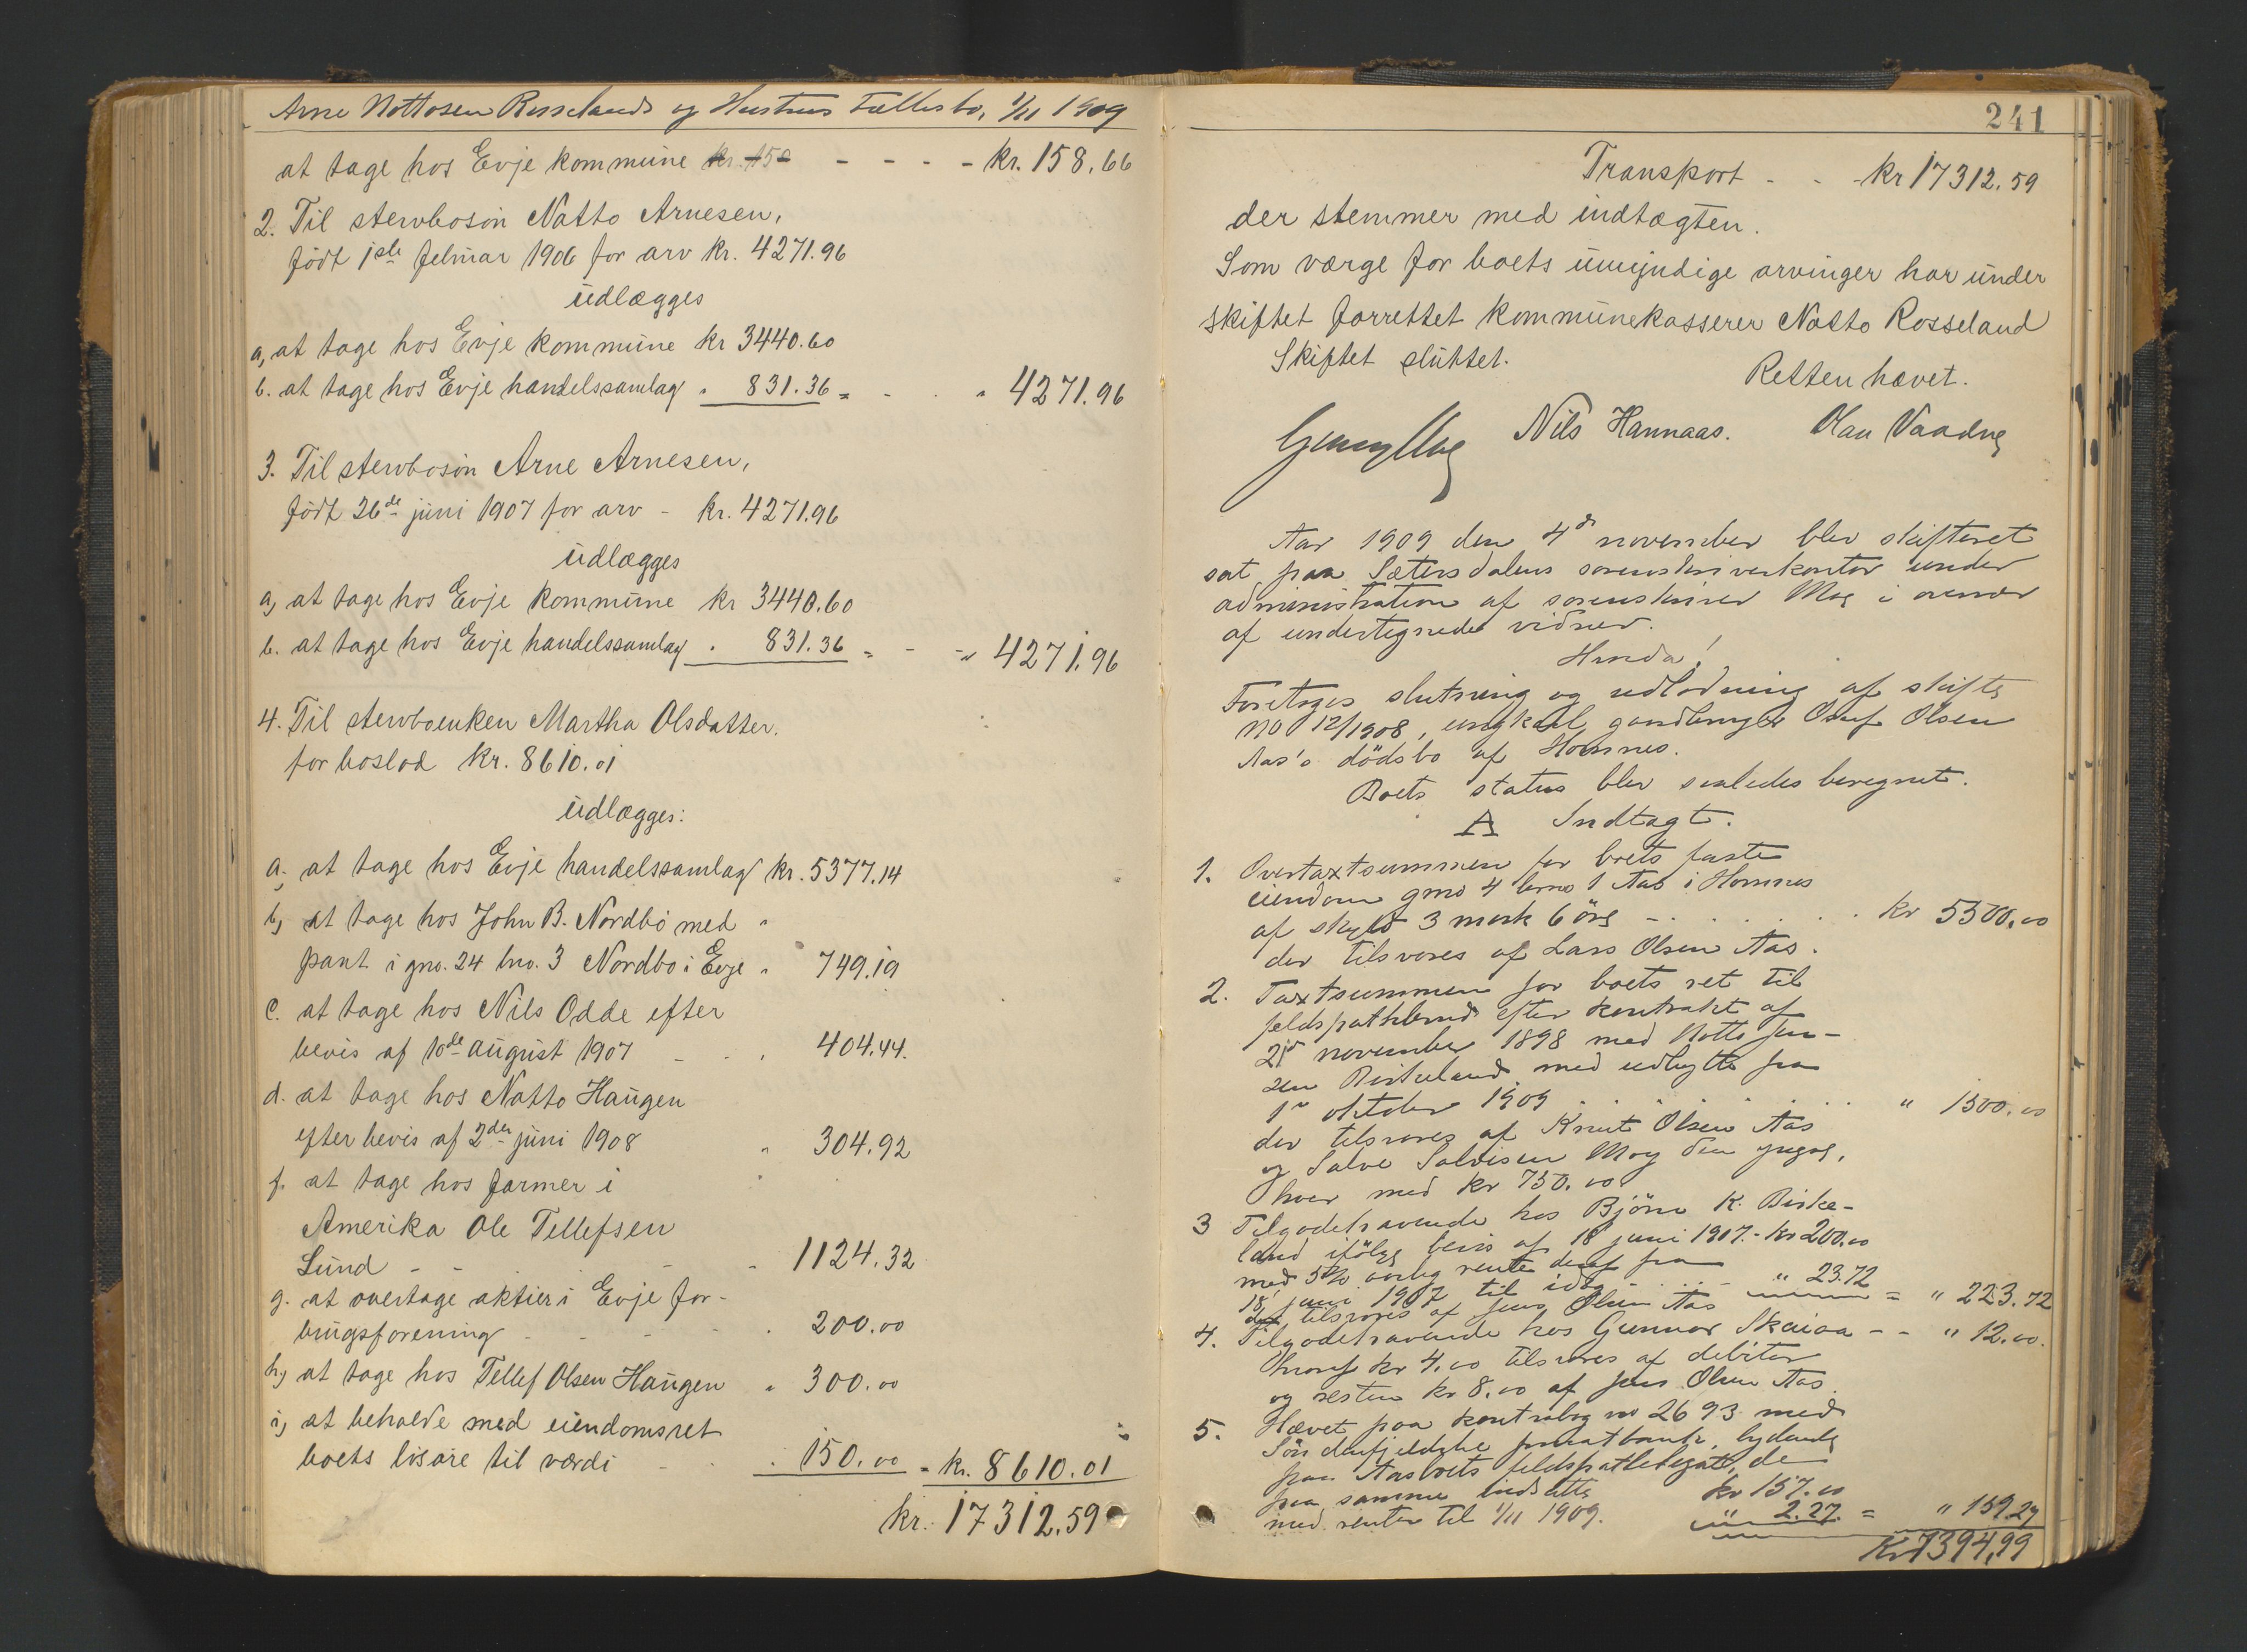 Arne Nottosen Rosselands og Hustrus Fællesbo, 1/11 1909
at tage hos Evje kommune kr. 150 - - - - kr. 158.66
2. Til stervbosön Notto Arnesen,
född 1ste februar 1906 for arv kr. 4271.96
udlægges
a, at tage hos Evje kommune kr 3440.60
b. at tage hos Evje handelssamlag " 831.36 = - - " 4271.96
3. Til stervbosön Arne Arnesen,
född 26de juni 1907 for arv - kr. 4271.96
udlægges
a, at tage hos Evje kommune kr 3440.60
b. at tage hos Evje handelssamlag " 831.36 = - - " 4271.96
4. Til stervboenken Martha Olsdatter.
for boslod kr. 8610.01
udlægges:
a, at tage hos Evje handelssamlag kr. 5377.14
b, at tage hos John B. Nordbö med "
pant i gno. 24 bno. 3 Nordbö i Evje " 749.19
c. at tage hos Nils Odde efter
bevis af 10de august 1907 - - " 404.44.
d. at tage hos Notto Haugen
efter bevis af 2den juni 1908 " 304.92
f. at tage hos farmer i
Amerika Ole Tellefsen
Lund - - - 1124.32
g. at overtage aktier i Evje for-
brugsforening - - - - 200.00
h, at tage hos Tellef Olsen Haugen " 300.00
i, at beholde med eiendomsret
boets lösöre til værdi - - 150.00 = kr. 8610.01
kr. 17312.59
241
Transport - - kr 17312.59
der stemmer med indtægten.
Som værge for boets umyndige arvinger har under
skiftet forrettet kommunekasserer Notto Rosseland
Skiftet sluttet.
Retten hævet.
Nils Hannaas. Olav
Aar 1909 den 4de november blev skifteret
sat paa Sætersdalens sorenskriverkontor under
administration af sorenskriver Moe i overvær
af undertegnede vidner.
Hvorda!
Foretoges slutning og udlodning af skifte
no 12/1908, ungkarl, gaardbruger Olsen
Aas's dödsbo af Hornnes.
Boets status blev saaledes beregnet.
A Indtægt.
1. Overtaxtsummen for boets faste
eiendom gno 4 bno 1 Aas i Hornnes
af skyld 3 mark 6 öre - . . . . . kr 5500.00
der tilsvares af Lars Olsen Aas.
2. Taxtsummen for boets ret til
feldspathbrud efter kontrakt af
21de november 1898 med Notto Jen-
sen Birkeland med udbytte fra
1ste oktober 1909 . . . . . " 1500.00
der tilsvares af Knut Olsen Aas
og Salve Salvesen Moy den yngre,
hver med kr 750.00
3 Tilgodehavende hos Björn K. Birke-
land ifölge bevis af 18 juni 1907. - kr 200.00
med 5% aarlig rente deraf fra
18 juni 1907 til idag . . . - " 23.72 = " 223.72
der tilsvares af Jens Olsen Aas
4. Tilgodehavende hos Gunnar Skaiaa - - " 12.00.
hvoraf kr 4.00 tilsvares af debitor
og resten kr 8.00 af Jens Olsen Aas.
5. Hævet paa kontrabog no 2693 med
Söndenfjeldske privatbank, lydende
paa Aasboets de
paa samme indsatte kr 157.00
med renter til 1/11 1909. " 2.27. = " 159.27
Kr 7394,99